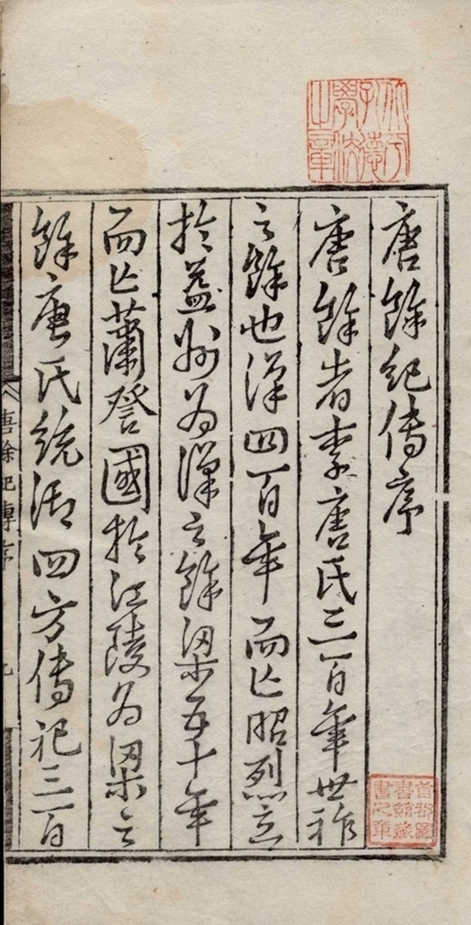 北平孔德學校之章
唐餘紀傳序
唐餘者李唐氏三百年世祚
之餘也漢四百年而亡昭烈立
於益州為漢之餘梁五十年
而亡蕭詧國於江陵為梁之
餘唐氏統御四方傳祀三百
唐餘紀傳序
首都圖書館藏書之章